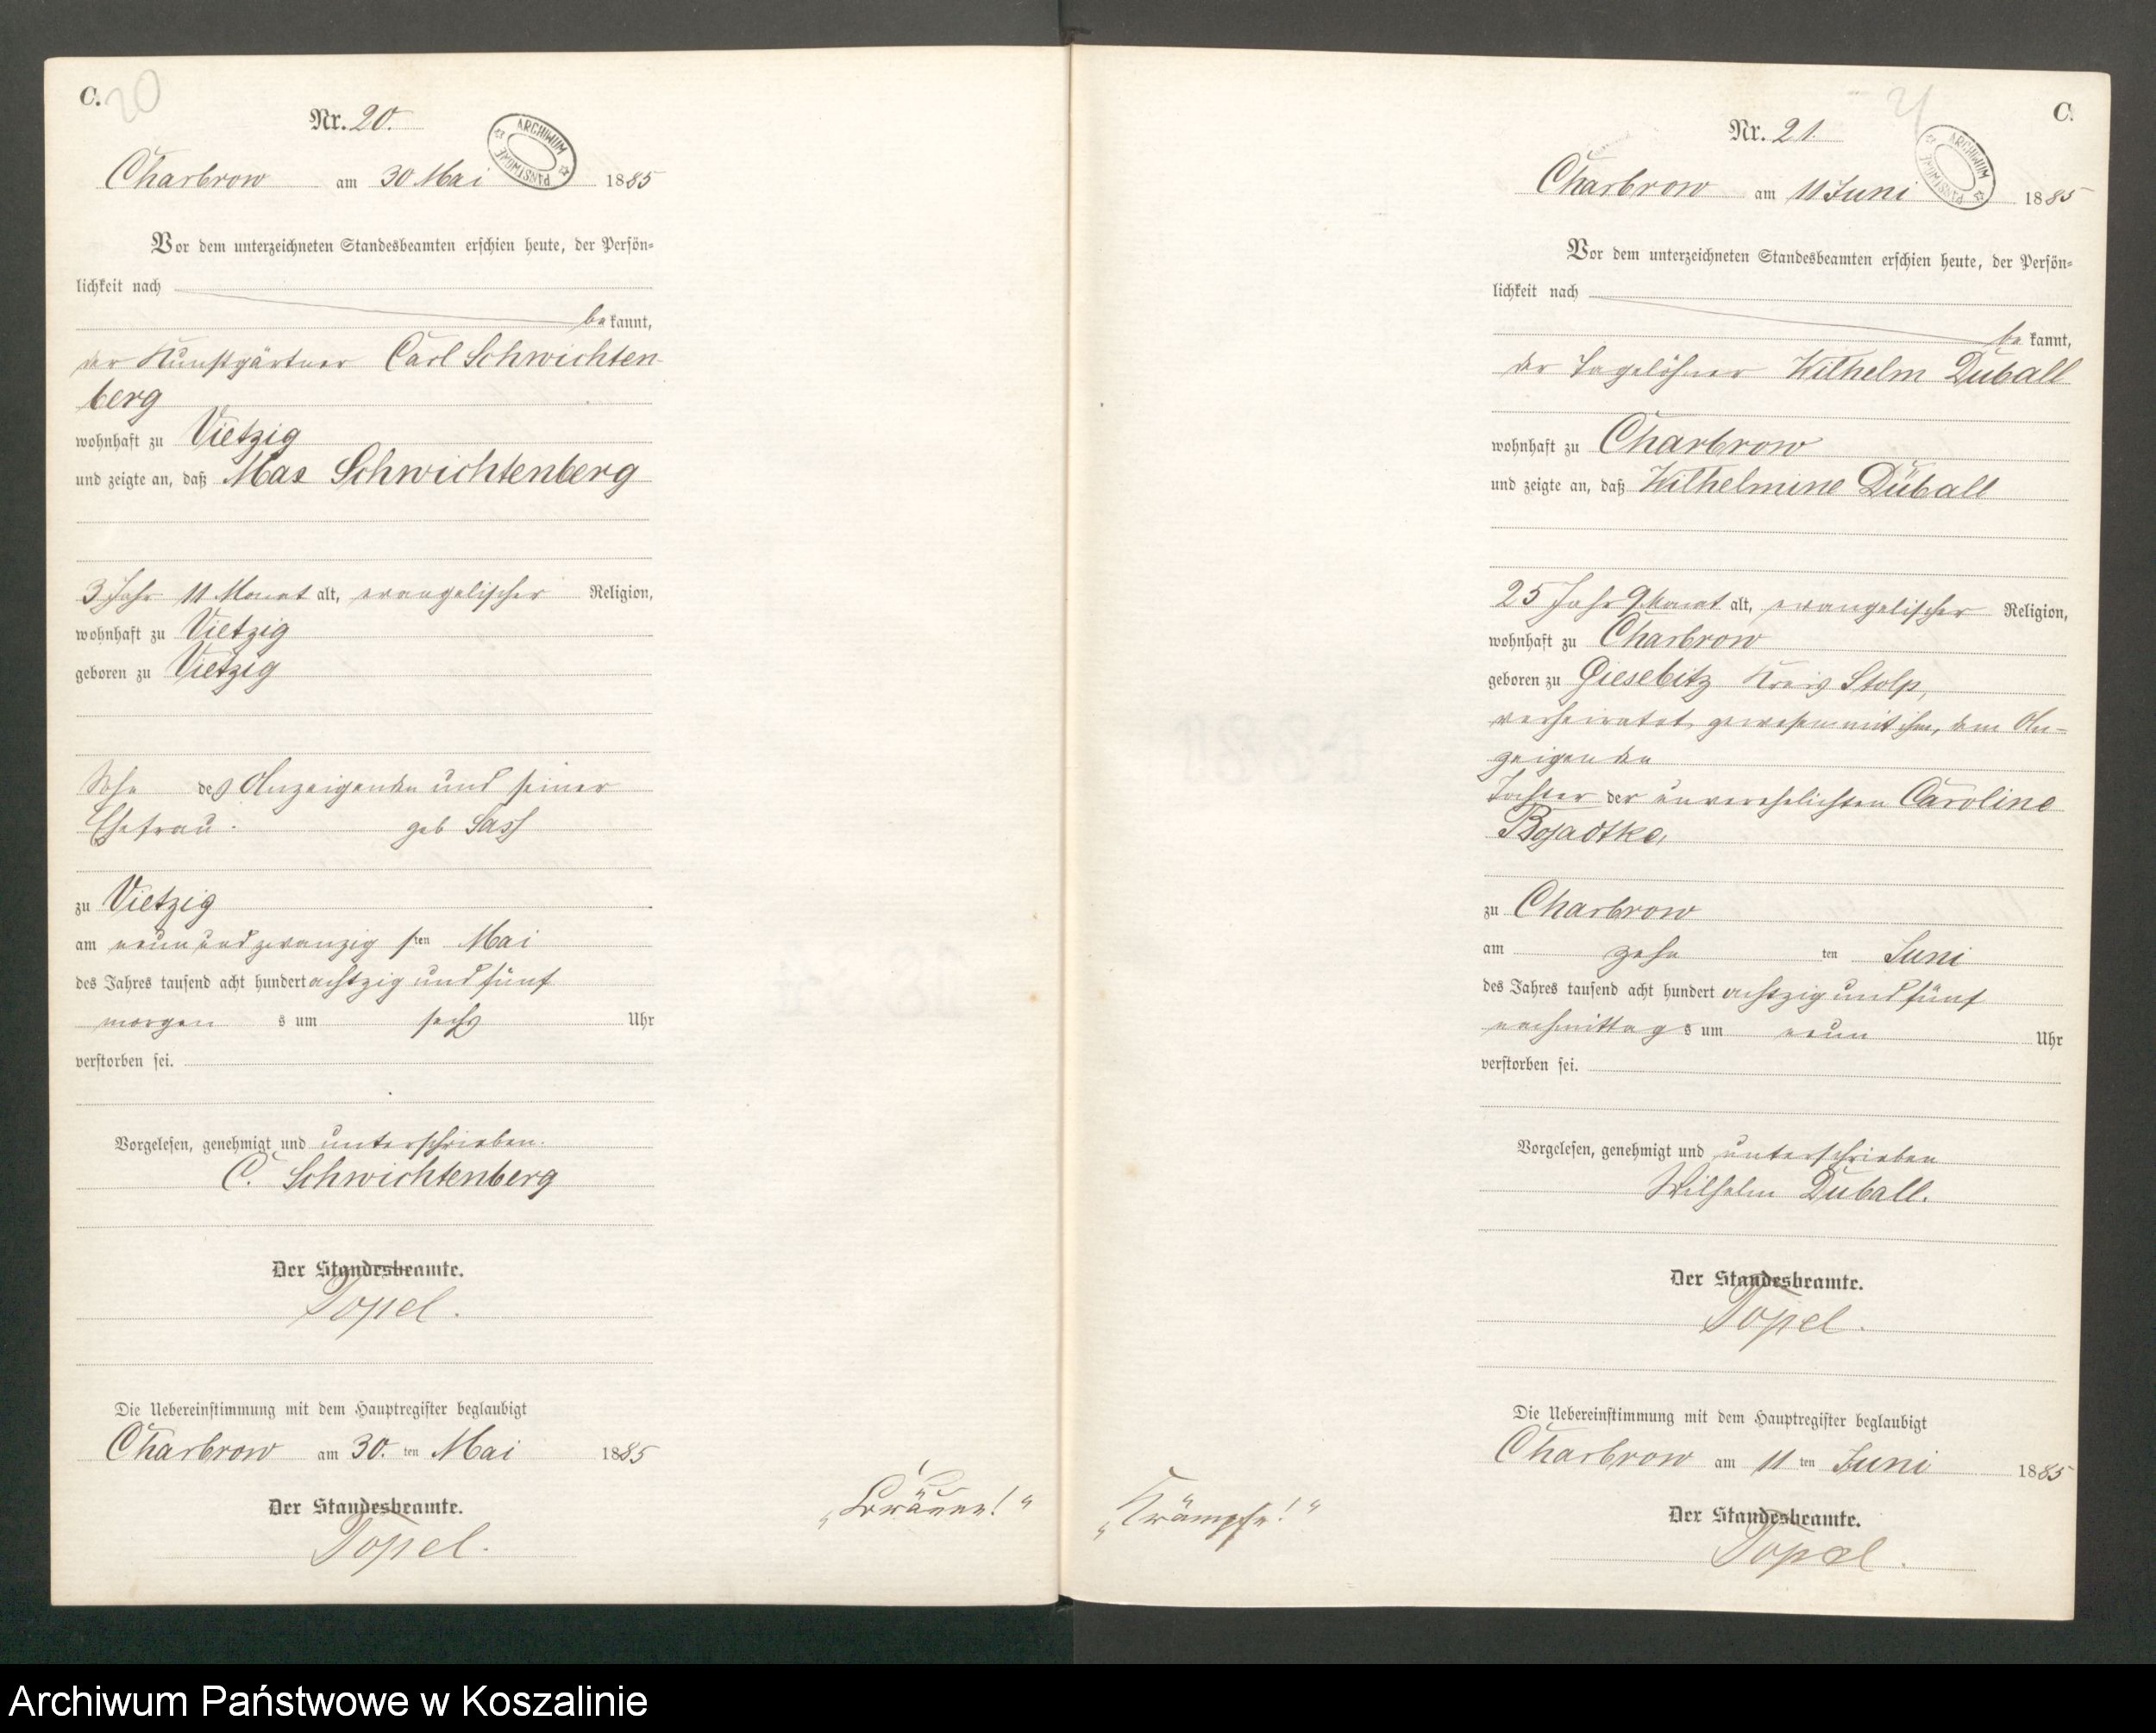 C.
20
Nr. 20.
ARCHIWUM PAŃSTWOWE
Charbrow am 30 Mai 1885
Vor dem unterzeichneten Standesbeamten erschien heute, der Persön=
lichkeit nach
bekannt,
der Kunstgärtner Carl Schwichten-
berg
wohnhaft zu Vietzig
und zeigte an, daß Max Schwichtenberg
3 Jahr 11 Monat alt, evangelischer Religion,
wohnhaft zu Vietzig
geboren zu Vietzig
Sohn des Anzeigenden und seiner
Ehefrau geb Sass
zu Vietzig
am neun und zwanzigsten Mai
des Jahres tausend acht hundert achtzig und fünf
morgens um sechs Uhr
verstorben sei.
Vorgelesen, genehmigt und unterschrieben.
C. Schwichtenberg
Der Standesbeamte.
Topel.
Die Uebereinstimmung mit dem Hauptregister beglaubigt
Charbrow am 30. ten Mai 1885
Der Standesbeamte.
Topel.
„Bräune!“
C.
21
Nr. 21.
ARCHIWUM PAŃSTWOWE
Charbrow am 11 Juni 1885
Vor dem unterzeichneten Standesbeamten erschien heute, der Persön=
lichkeit nach
bekannt,
der Tagelöhner Wilhelm Duball
wohnhaft zu Charbrow
und zeigte an, daß Wilhelmine Duball
25 Jahr 9 Monat alt, evangelischer Religion,
wohnhaft zu Charbrow
geboren zu Giesebitz Kreis Stolp,
verheiratet gewesen mit ihm, dem An-
zeigenden
Tochter der unverehelichten Caroline
zu Charbrow
am zehnten Juni
des Jahres tausend acht hundert achtzig und fünf
nachmittags um neun Uhr
verstorben sei.
Vorgelesen, genehmigt und unterschrieben
Wilhelm Duball.
Der Standesbeamte.
Topel.
Die Uebereinstimmung mit dem Hauptregister beglaubigt
Charbrow am 11 ten Juni 1885
Der Standesbeamte.
Topel.
„Krämpfe!“
Archiwum Państwowe w Koszalinie